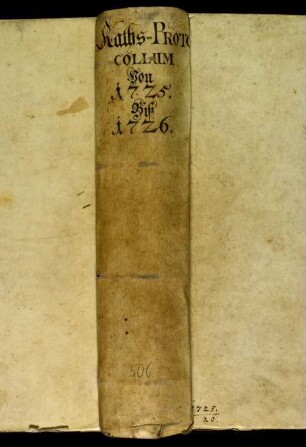 Raths-PROTO
COLLUM
Von
1725.
Biß
1726.
506
1725.